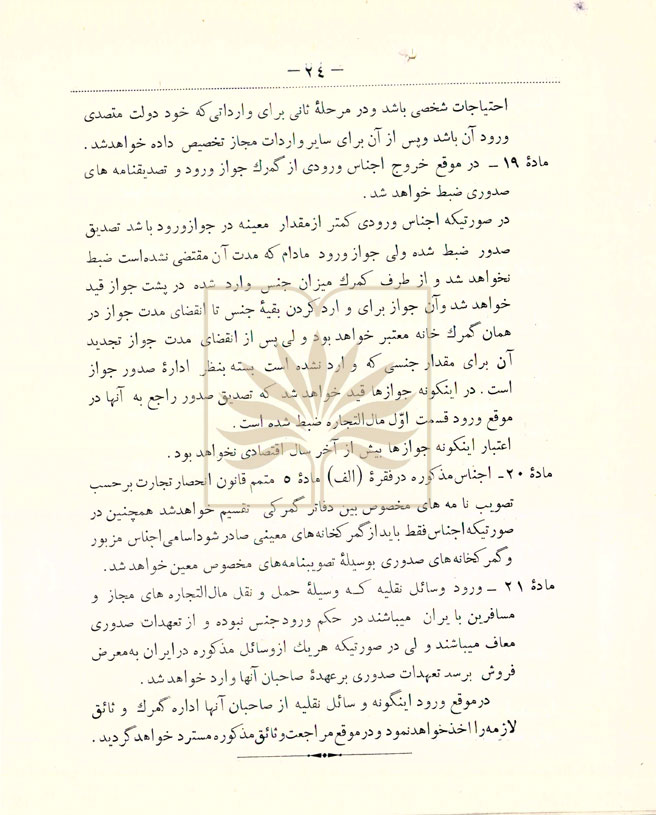 — ٢٤ —
احتیاجات شخصی باشد ودر مرحلهٔ ثانی برای وارداتی‌که خود دولت متصدی
ورود آن باشد وپس از آن برای سایر واردات مجاز تخصیص داده خواهدشد .
مادهٔ ١٩ – در موقع خروج اجناس ورودی از گمرك جواز ورود و تصدیقنامه های
صدوری ضبط خواهد شد .
در صورتیکه اجناس ورودی کمتر ازمقدار معینه در جوازورود باشد تصدیق
صدور ضبط شده ولی جواز ورود مادام که مدت آن مقتضی نشده‌است ضبط
نخواهد شد و از طرف کمرك میزان جنس وارد شده در پشت جواز قید
خواهد شد وآن جواز برای و اردکردن بقیهٔ جنس تا انقضای مدت جواز در
همان گمرك خانه معتبر خواهد بود و لی پس از انقضای مدت جواز تجدید
آن برای مقدار جنسی که و ارد نشده است بسته بنظر ادارهٔ صدور جواز
است . در اینکونه جوازها قید خواهد شد که تصدیق صدور راجع به آنها در
موقع ورود قسمت اوّل مال‌التجاره ضبط شده است .
اعتبار اینکونه جوازها بیش از آخر سال اقتصادی نخواهد بود .
مادهٔ ٢٠- اجناس مذکوره درفقرهٔ (الف) مادهٔ ٥ متمم قانون انحصار تجارت برحسب
تصویب نا مه های مخصوص بین دفاتر گمرکی تقسیم خواهدشد همچنین در
صورتیکه‌اجناس فقط بایداز گمرکخانه‌های معینی صادر شوداسامی‌اجناس مزبور
وگمرکخانه‌های صدوری بوسیلهٔ تصویبنامه‌های مخصوص معین خواهد شد .
مادهٔ ٢١ – ورود وسائل نقلیه کـه وسیلهٔ حمل و نقل مال‌التجاره های مجاز و
مسافرین با یران میباشند در حکم ورود جنس نبوده و از تعهدات صدوری
معاف میباشند و لی در صورتیکه هریك ازوسائل مذکوره درایران به‌معرض
فروش برسد تعهدات صدوری برعهدهٔ صاحبان آنها وارد خواهد شد .
درموقع ورود اینگونه و سائل نقلیه از صاحبان آنها اداره گمرك و ثائق
لازمه را اخذ خواهد نمود و درموقع مراجعت وثائق مذکوره مسترد خواهد گردید .